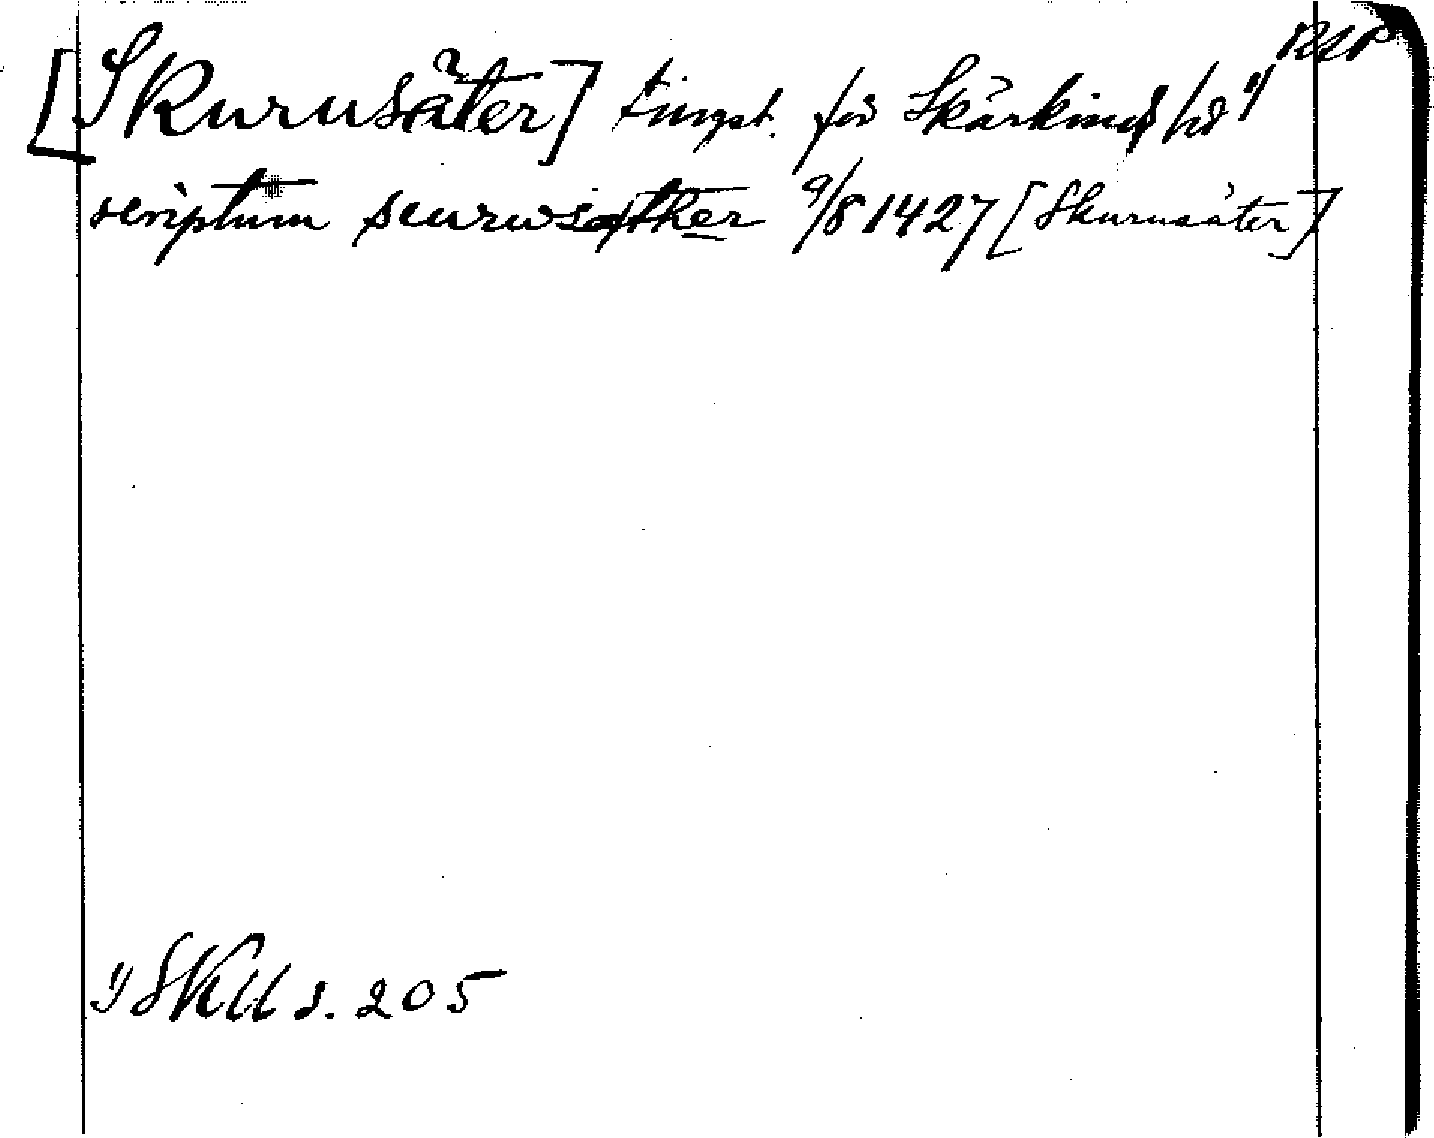 [Skurusäter] tingst. för Skärkind hd 1)
scriptum scurwsæther 9/8 1427 [Skurusäter]
1) SKU s. 205